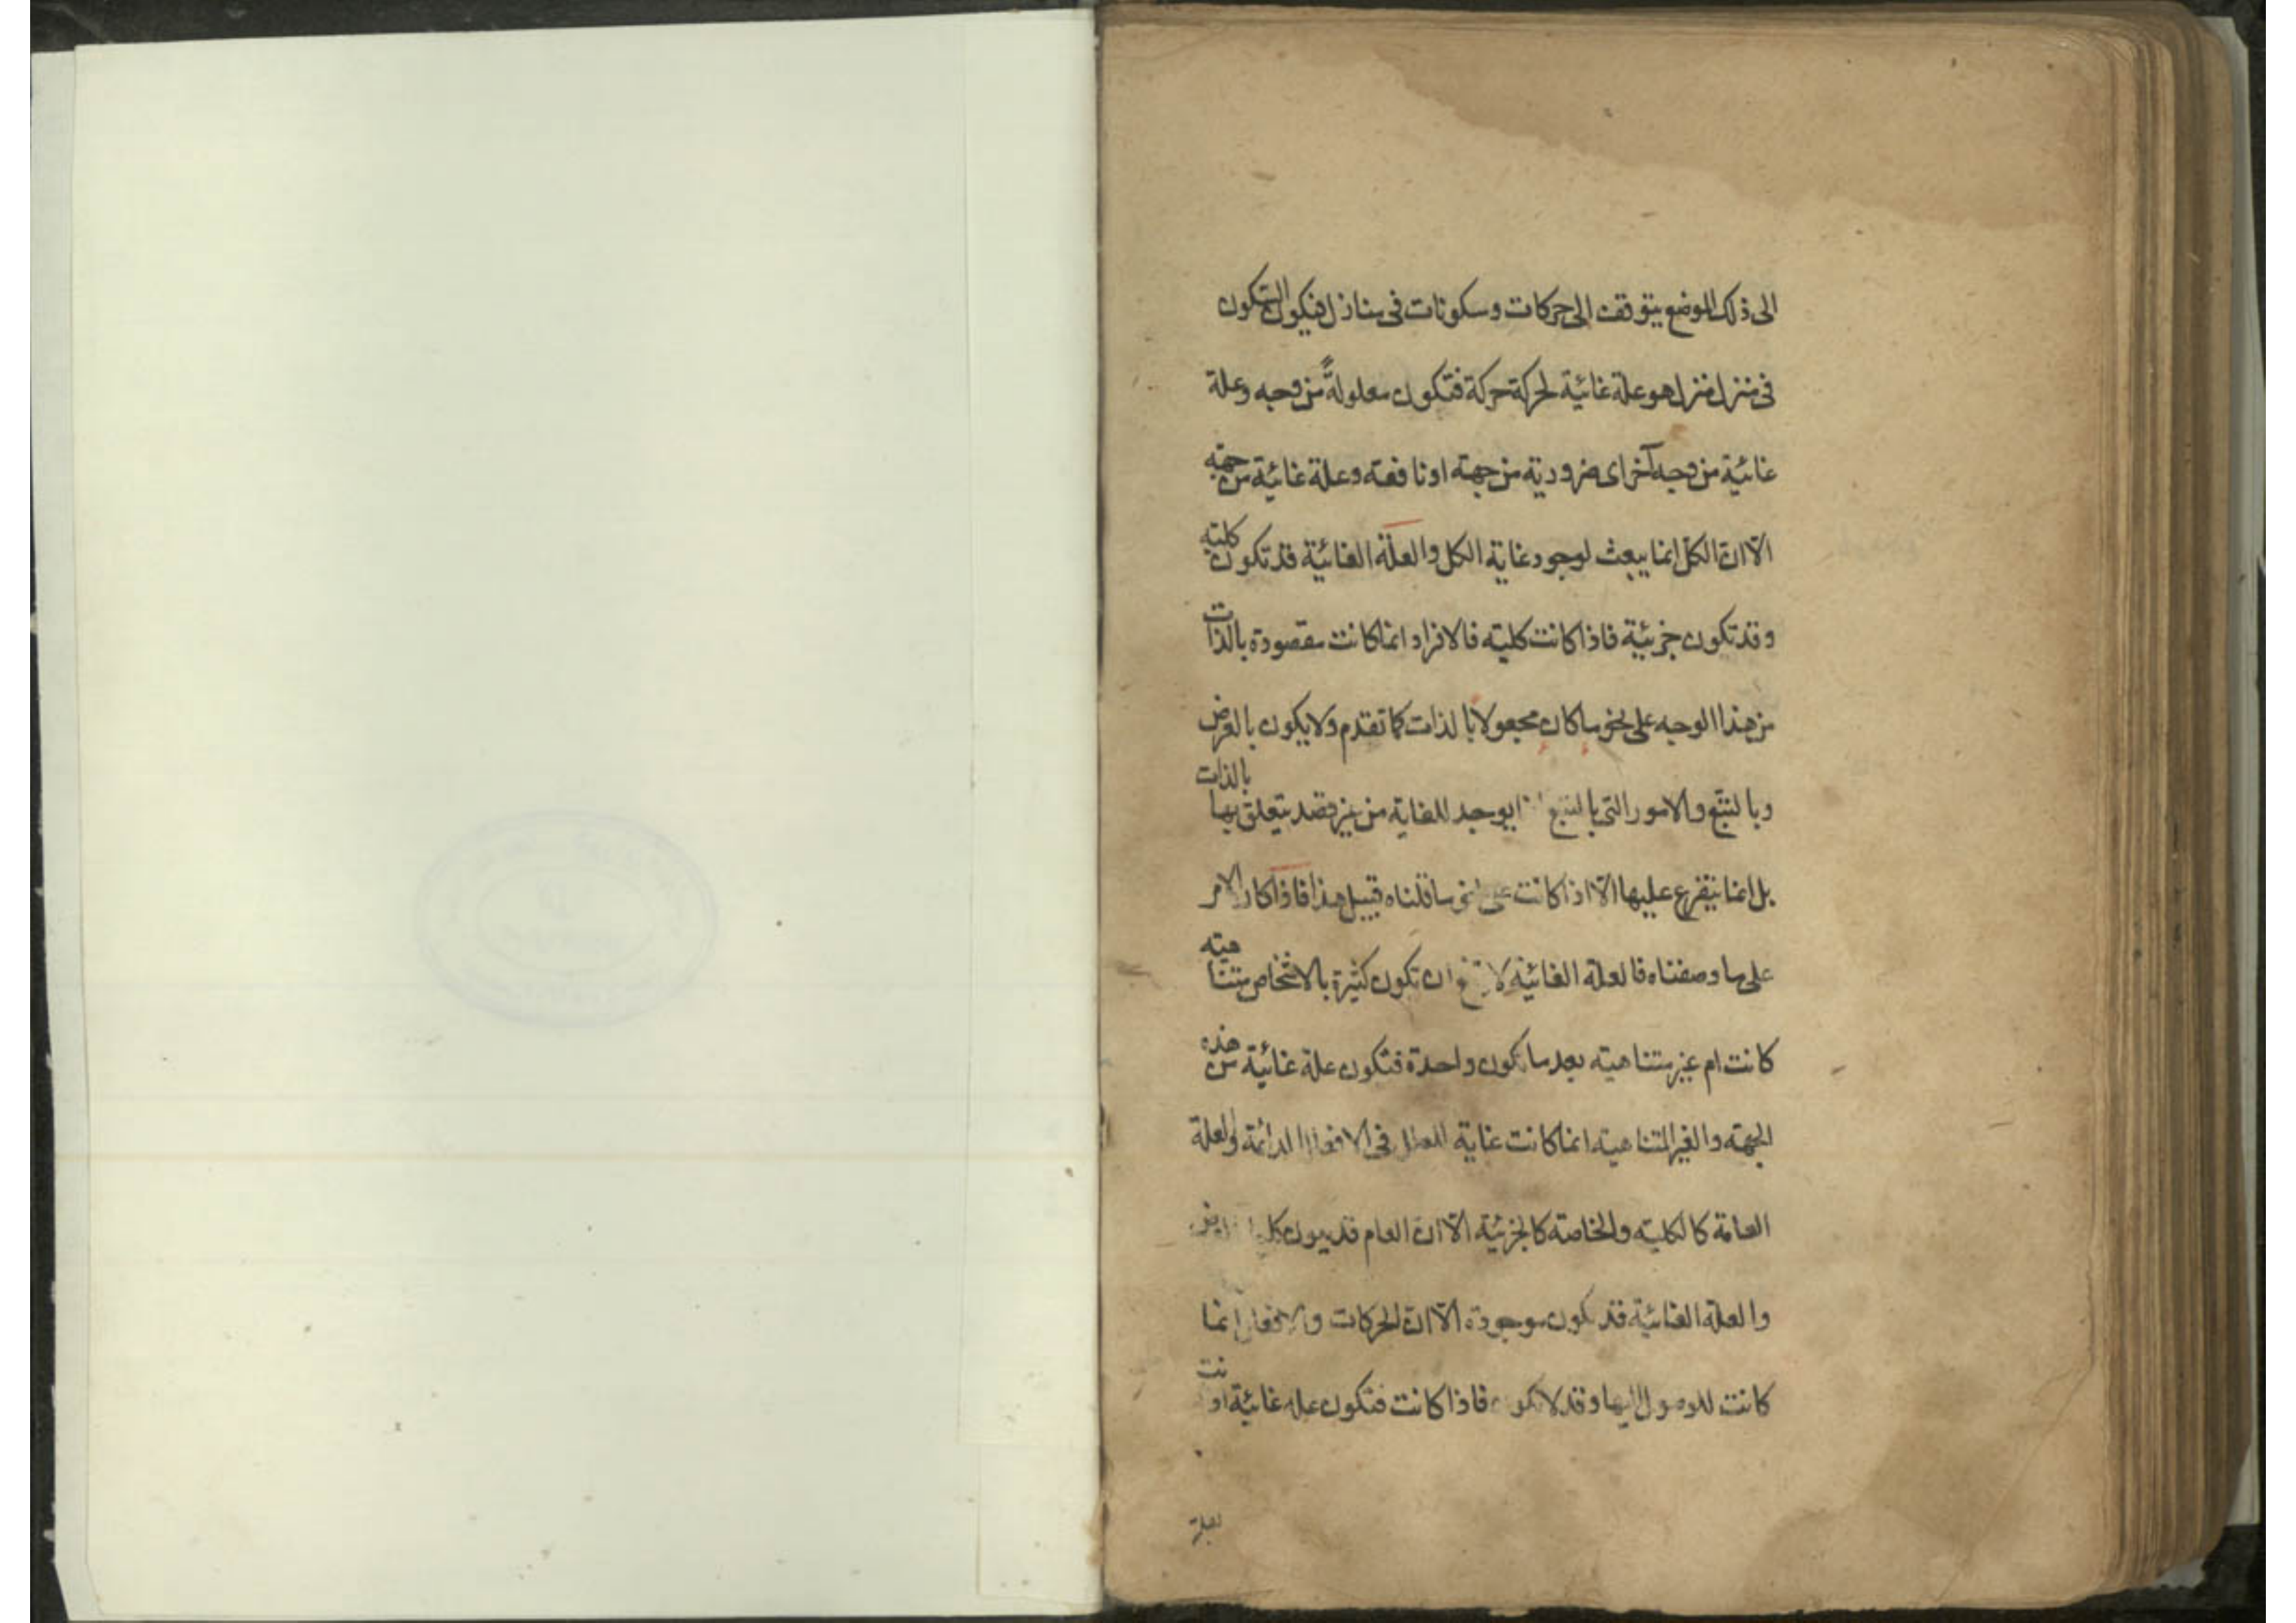 الى ذلك الموضع يتوقف الى حركات وسكونات فى منازل فيكون التكون
فى منزل منزل هو علة غائية لحركة حركة فتكون معلولةً من وجه وعلة
غائية من وجه آخر اى ضرورية من جهة او نافعة وعلة غائية من جهة
الّا انّ الكل انما يبعث لوجود غاية الكل والعلّة الغائية قد تكون كلية
وقد تكون جزئية فاذا كانت كلية فالافراد انما كانت مقصودة بالذات
من هذا الوجه على نحو ما كان مجعولا بالذات كما تقدم ولا يكون بالعرض
وبالتبع والامور التى بالتبع يوجد للغاية من غير قصد يتعلق بها بالذات
بل انما يتفرع عليها الّا اذا كانت على نحو ما قلناه قبيل هذا فاذا كان الامر
على ما وصفناه فالعلة الغائية لا ان تكون كثيرة بالاشخاص متناهية
كانت ام غير متناهية بعد ما تكون واحدة فتكون علة غائية من هذه
الجهة والغير المتناهية انما كانت غاية فى الافعال الدائمة والعلة
العامة كالكلية والخاصة كالجزئية الّا انّ العام قد يكون
والعلة الغائية قد تكون موجودة الّا انّ الحركات والافعال انما
كانت للوصول اليها وقد لا تكون فاذا كانت فتكون علة غائية او